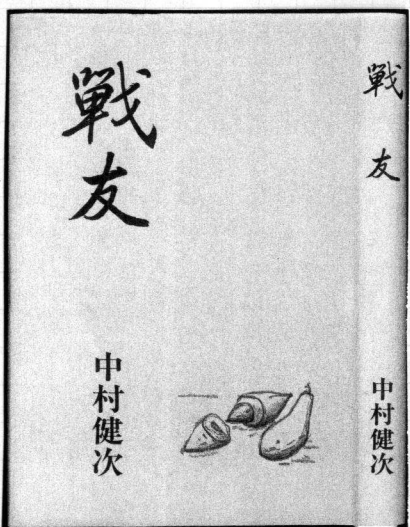 戰友
中村健次
戰友
中村健次